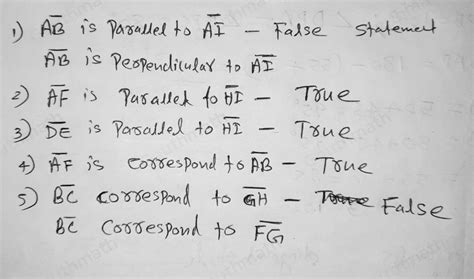 1) A̅B̅ is Parallel to A̅I̅ – False Statement
A̅B̅ is Perpendicular to A̅I̅
2) A̅F̅ is Parallel to H̅I̅ – True
3) D̅E̅ is Parallel to H̅I̅ – True
4) A̅F̅ is correspond to A̅B̅ – True
5) B̅C̅ correspond to G̅H̅ – True False
B̅C̅ Correspond to F̅G̅.